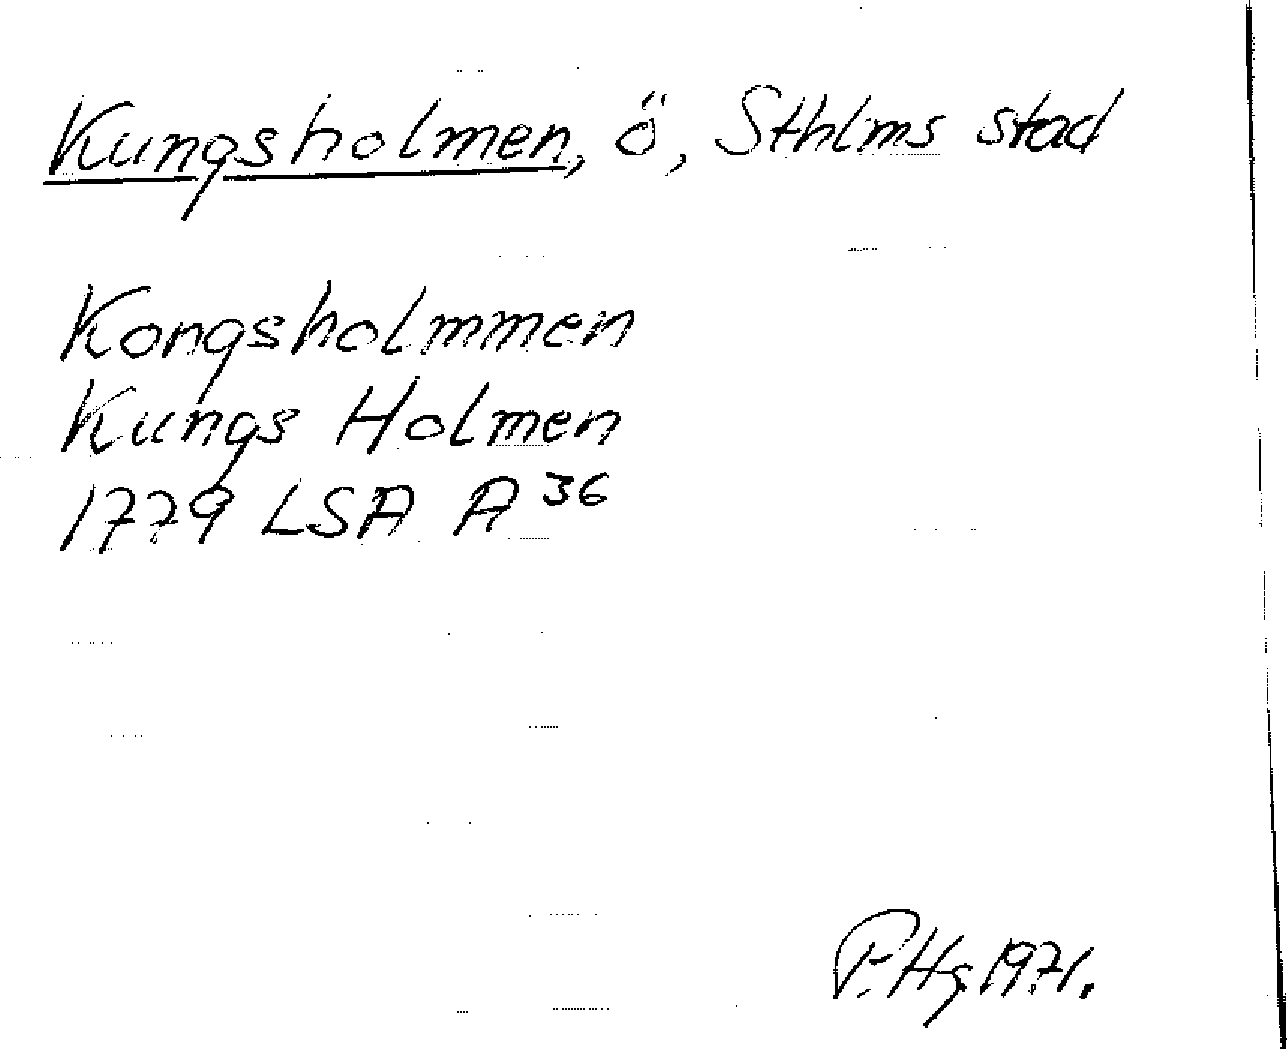 Kungsholmen, ö, Sthlms stad
Kongsholmmen
Kungs Holmen
1779 LSA A 36
P. Hg. 1971.